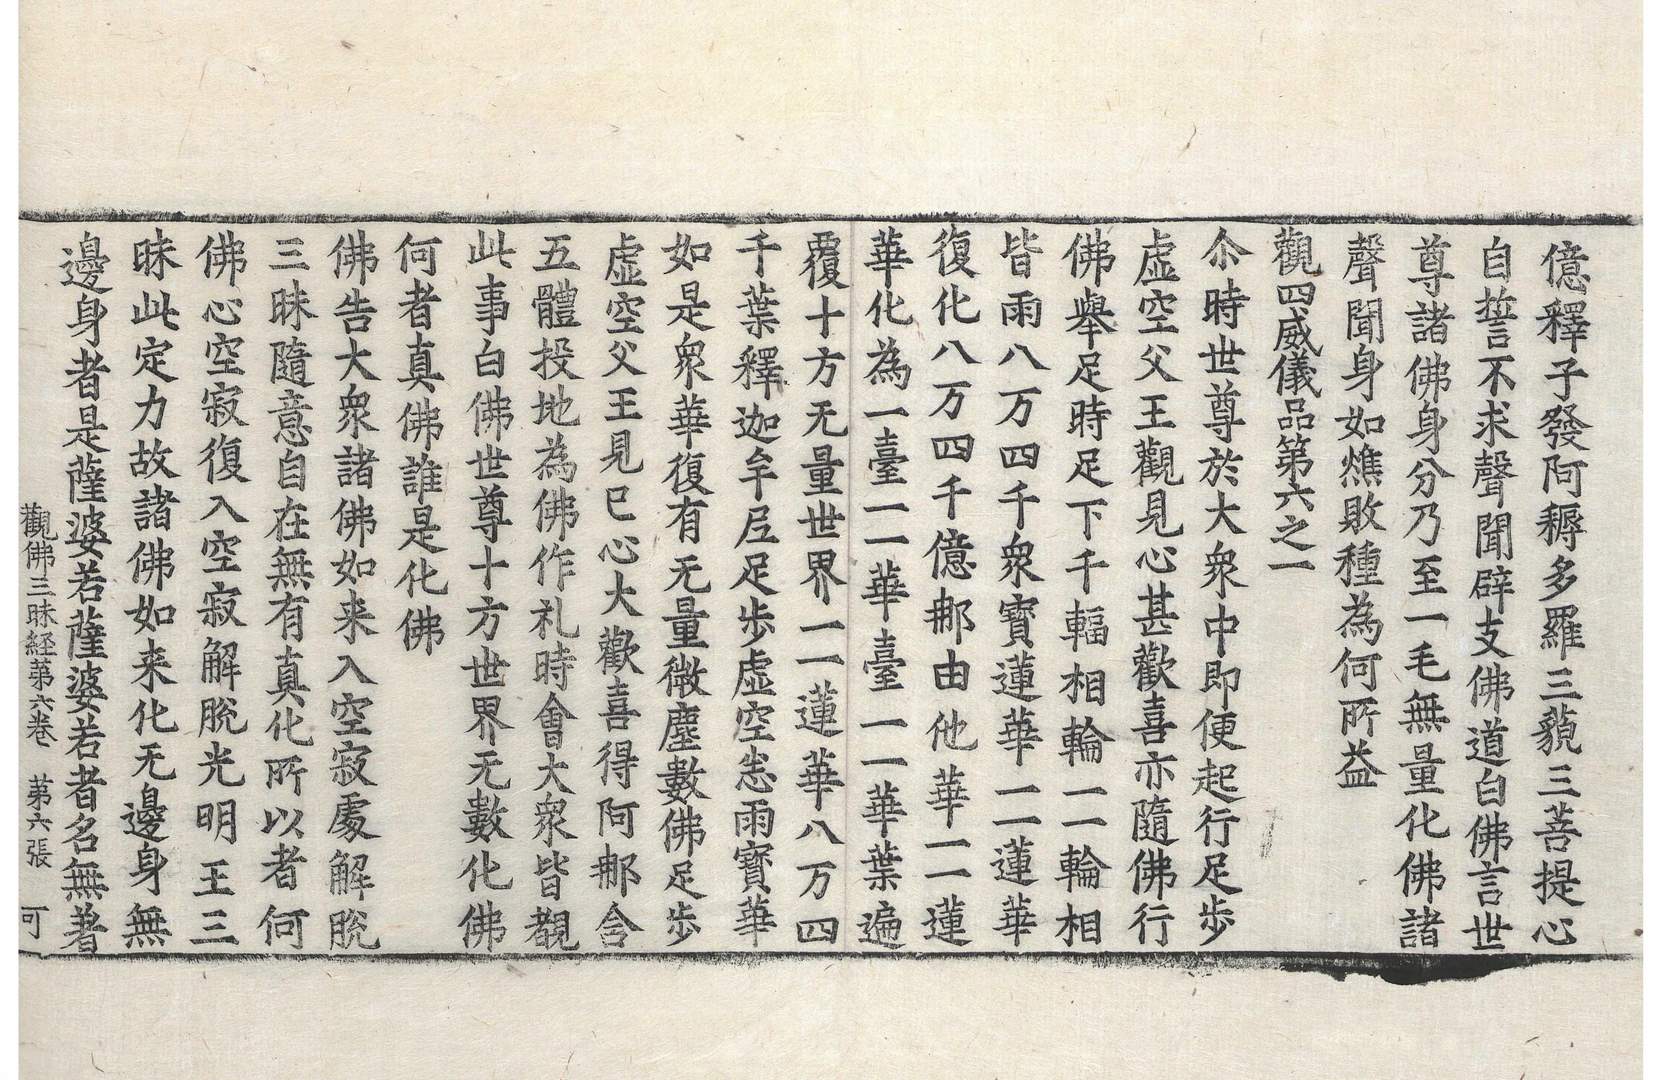 億釋子發阿耨多羅三藐三菩提心
自誓不求聲聞辟支佛道白佛言世
尊諸佛身分乃至一毛無量化佛諸
聲聞身如燋敗種為何所益
觀四威儀品第六之一
尒時世尊於大衆中即便起行足步
虛空父王觀見心甚歡喜亦隨佛行
佛舉足時足下千輻相輪一一輪相
皆雨八万四千衆寶蓮華一一蓮華
復化八万四千億那由他華一一蓮
華化為一臺一一華臺一一華葉遍
覆十方无量世界一一蓮華八万四
千葉釋迦牟尼足步虛空悉雨寶華
如是衆華復有无量微塵數佛足步
虛空父王見已心大歡喜得阿那含
五體投地為佛作礼時會大衆皆覩
此事白佛世尊十方世界无數化佛
何者真佛誰是化佛
佛告大衆諸佛如来入空寂處解脫
三昧隨意自在無有真化所以者何
佛心空寂復入空寂解脫光明王三
昧此定力故諸佛如来化无邊身無
邊身者是薩婆若薩婆若者名無著
觀佛三昧経第六卷 第六張 可